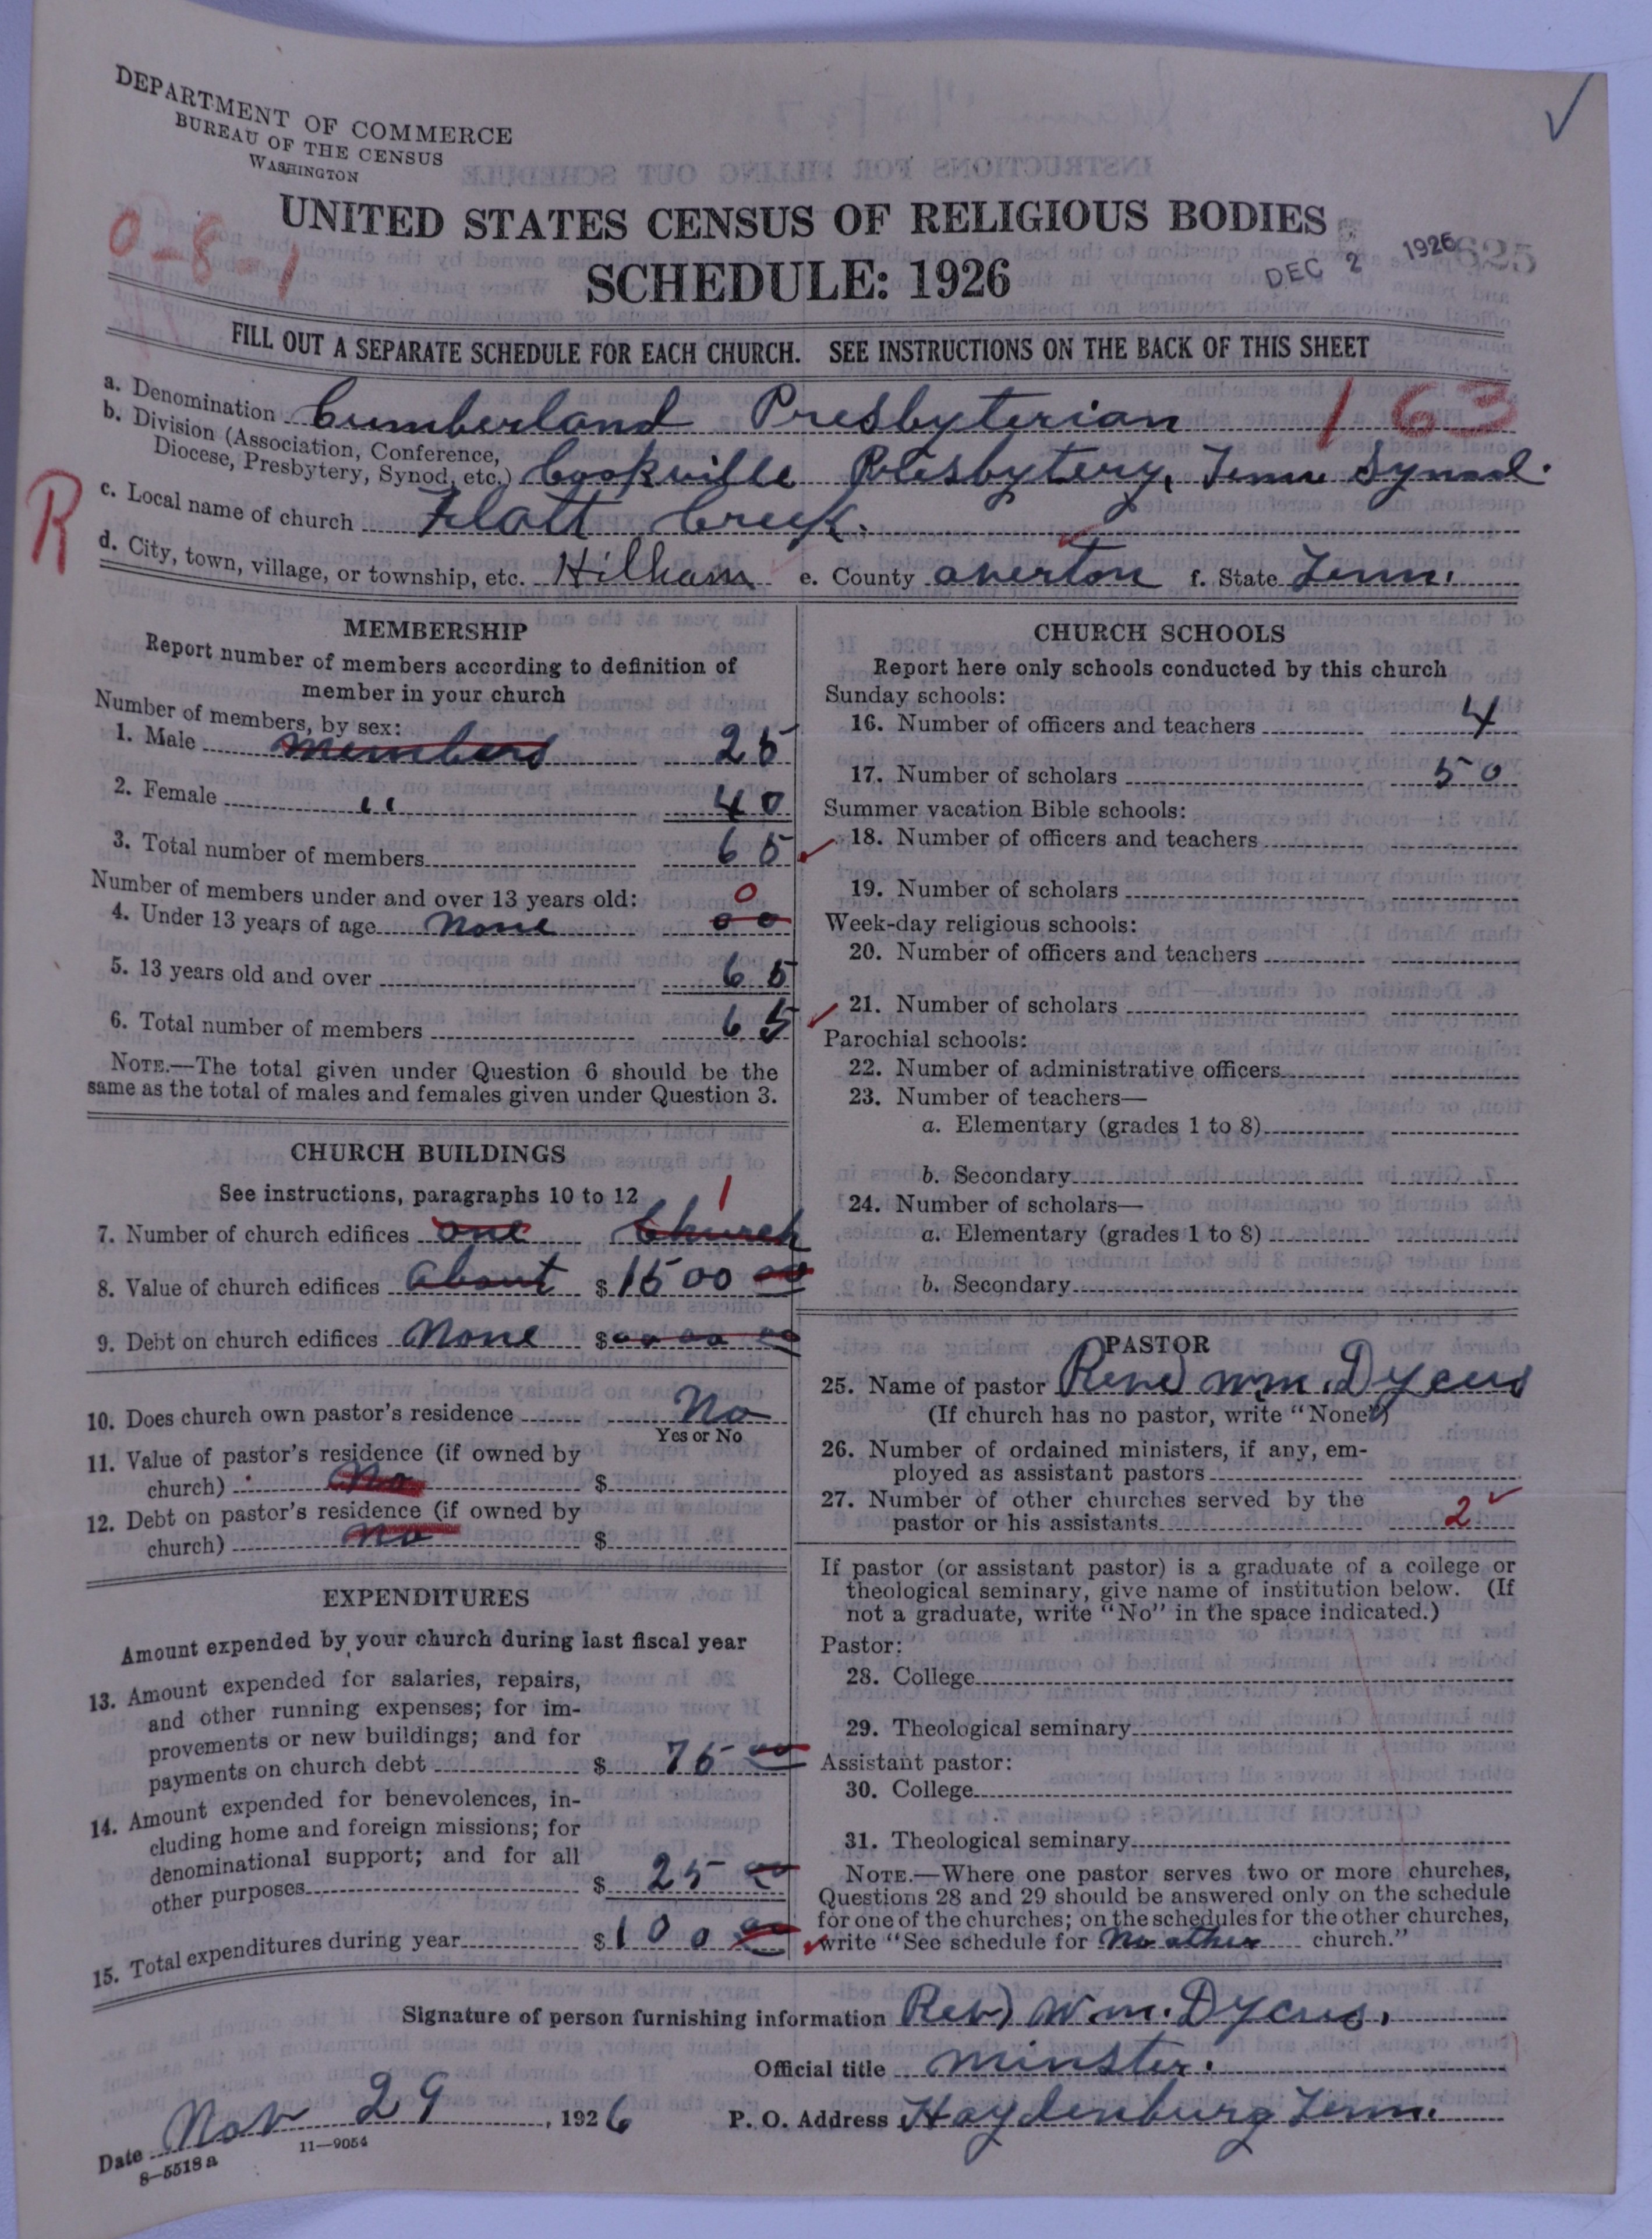 DEPARTMENT OF COMMERCE
BUREAU OF THE CENSUS
WASHINGTON
UNITED STATES CENSUS OF RELIGIOUS BODIES
SCHEDULE: 1926
0-8-1
DEC 2 1926
FILL OUT A SEPARATE SCHEDULE FOR EACH CHURCH. SEE INSTRUCTIONS ON THE BACK OF THIS SHEET
a. Denomination Cumberland Presbyterian 163
b. Division (Association, Conference,
Diocese, Presbytery, Synod, etc.) Cookville Presbytery, Tenn Synod.
R
c. Local name of church Flatt Creek.
d. City, town, village, or township, etc. Hilham e. County Overton f. State Tenn.
MEMBERSHIP
Report number of members according to definition of
member in your church
Number of members, by sex:
1. Male members 25
2. Female " 40
3. Total number of members 65
Number of members under and over 13 years old: 0
4. Under 13 years of age None 00
5. 13 years old and over 65
6. Total number of members 65
NOTE.—The total given under Question 6 should be the
same as the total of males and females given under Question 3.
CHURCH BUILDINGS
See instructions, paragraphs 10 to 12 1
7. Number of church edifices one Church
8. Value of church edifices about $1500 00
9. Debt on church edifices None $00 00 00
10. Does church own pastor's residence No
Yes or No
11. Value of pastor's residence (if owned by
church) No $
12. Debt on pastor's residence (if owned by
church) No $
EXPENDITURES
Amount expended by your church during last fiscal year
13. Amount expended for salaries, repairs,
and other running expenses; for im-
provements or new buildings; and for
payments on church debt $ 75 00
14. Amount expended for benevolences, in-
cluding home and foreign missions; for
denominational support; and for all
other purposes $ 25 00
15. Total expenditures during year $100 00
CHURCH SCHOOLS
Report here only schools conducted by this church
Sunday schools:
16. Number of officers and teachers 4
17. Number of scholars 50
Summer vacation Bible schools:
18. Number of officers and teachers
19. Number of scholars
Week-day religious schools:
20. Number of officers and teachers
21. Number of scholars
Parochial schools:
22. Number of administrative officers
23. Number of teachers—
a. Elementary (grades 1 to 8)
b. Secondary
24. Number of scholars—
a. Elementary (grades 1 to 8)
b. Secondary
PASTOR
25. Name of pastor Wm. Dycus
(If church has no pastor, write "None")
26. Number of ordained ministers, if any, em-
ployed as assistant pastors
27. Number of other churches served by the
pastor or his assistants 2
If pastor (or assistant pastor) is a graduate of a college or
theological seminary, give name of institution below. (If
not a graduate, write "No" in the space indicated.)
Pastor:
28. College
29. Theological seminary
Assistant pastor:
30. College
31. Theological seminary
NOTE.—Where one pastor serves two or more churches,
Questions 28 and 29 should be answered only on the schedule
for one of the churches; on the schedules for the other churches,
write "See schedule for No other church."
Signature of person furnishing information Rev) Wm. Dycus.
Official title minster.
Date Nov 29, 1926 P. O. Address Haydenburg Tenn.
8—5518 a 11—9054